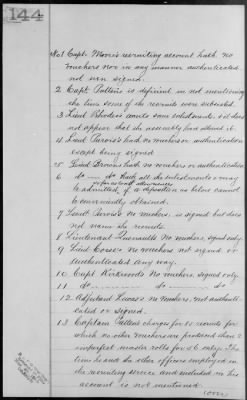 144
No 1 Capt. Morris recruiting account hath no
vouchers nor in any manner authenticated
not even signed.
2 Capt. Pattens is deficient in not mentioning
the time some of the recruits were subsisted.
3 Lieut Rhodes's wants some enlistments & it does
not appear that the assembly had allowed it.
4 Lieut Purvis's hath no vouchers or authentication
except being signed
5 Lieut Browns hath no vouchers or authentication
6 do do Hath all the enlistments & may
be admitted, if a deposition as below cannot
be conveniently obtained.
7 Lieut. Purvis's No vouchers, is signed but does
not name the recruits.
8 Lieutenant No vouchers, signed only.
9 Lieut No vouchers not signed or
authenticated any way.
10 Capt Kirkwoods No vouchers signed only
11 do do do
12 Adjutant Lucas's No vouchers, not authenti-
cated or signed.
13 Captain Pattens charges for 15 recruits for
which no other vouchers are produced than 2
imperfect muster rolls for 56 only. The
time he and the other officers employed in
the recruiting service and included in his
account is not mentioned.
(over)